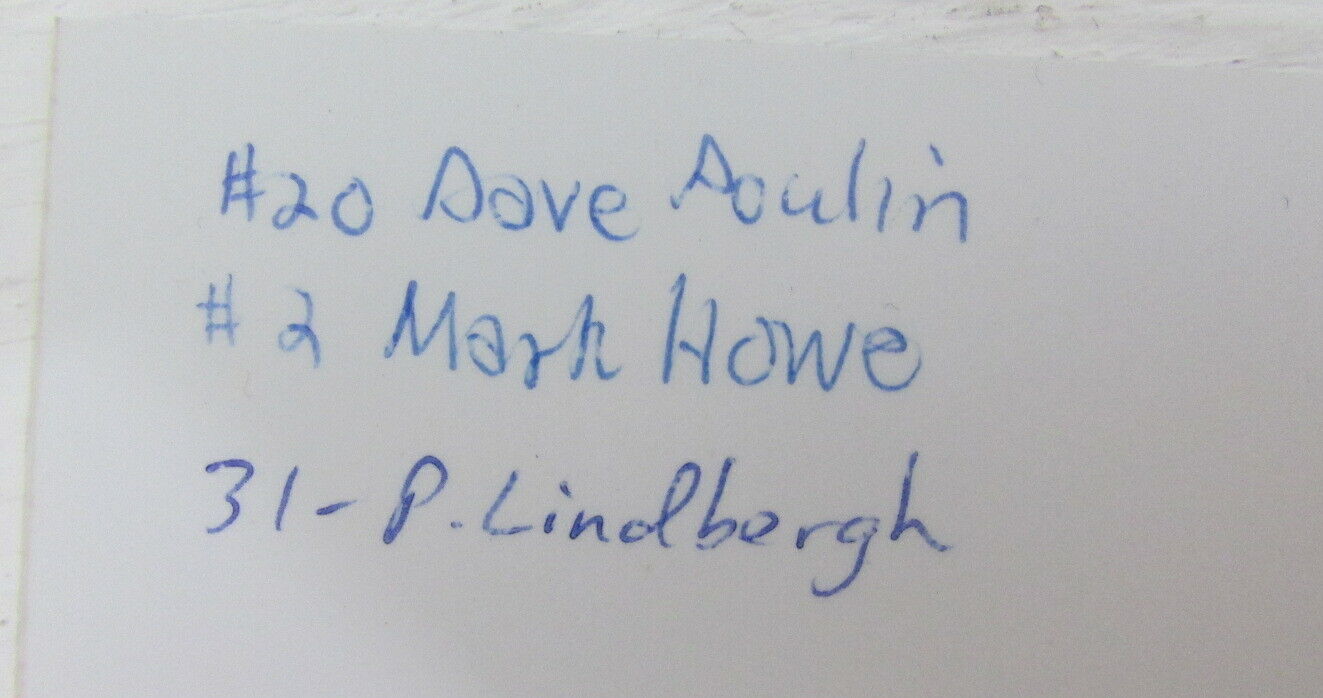 #20 Dave Poulin
# 2 Mark Howe
31- P. Lindbergh